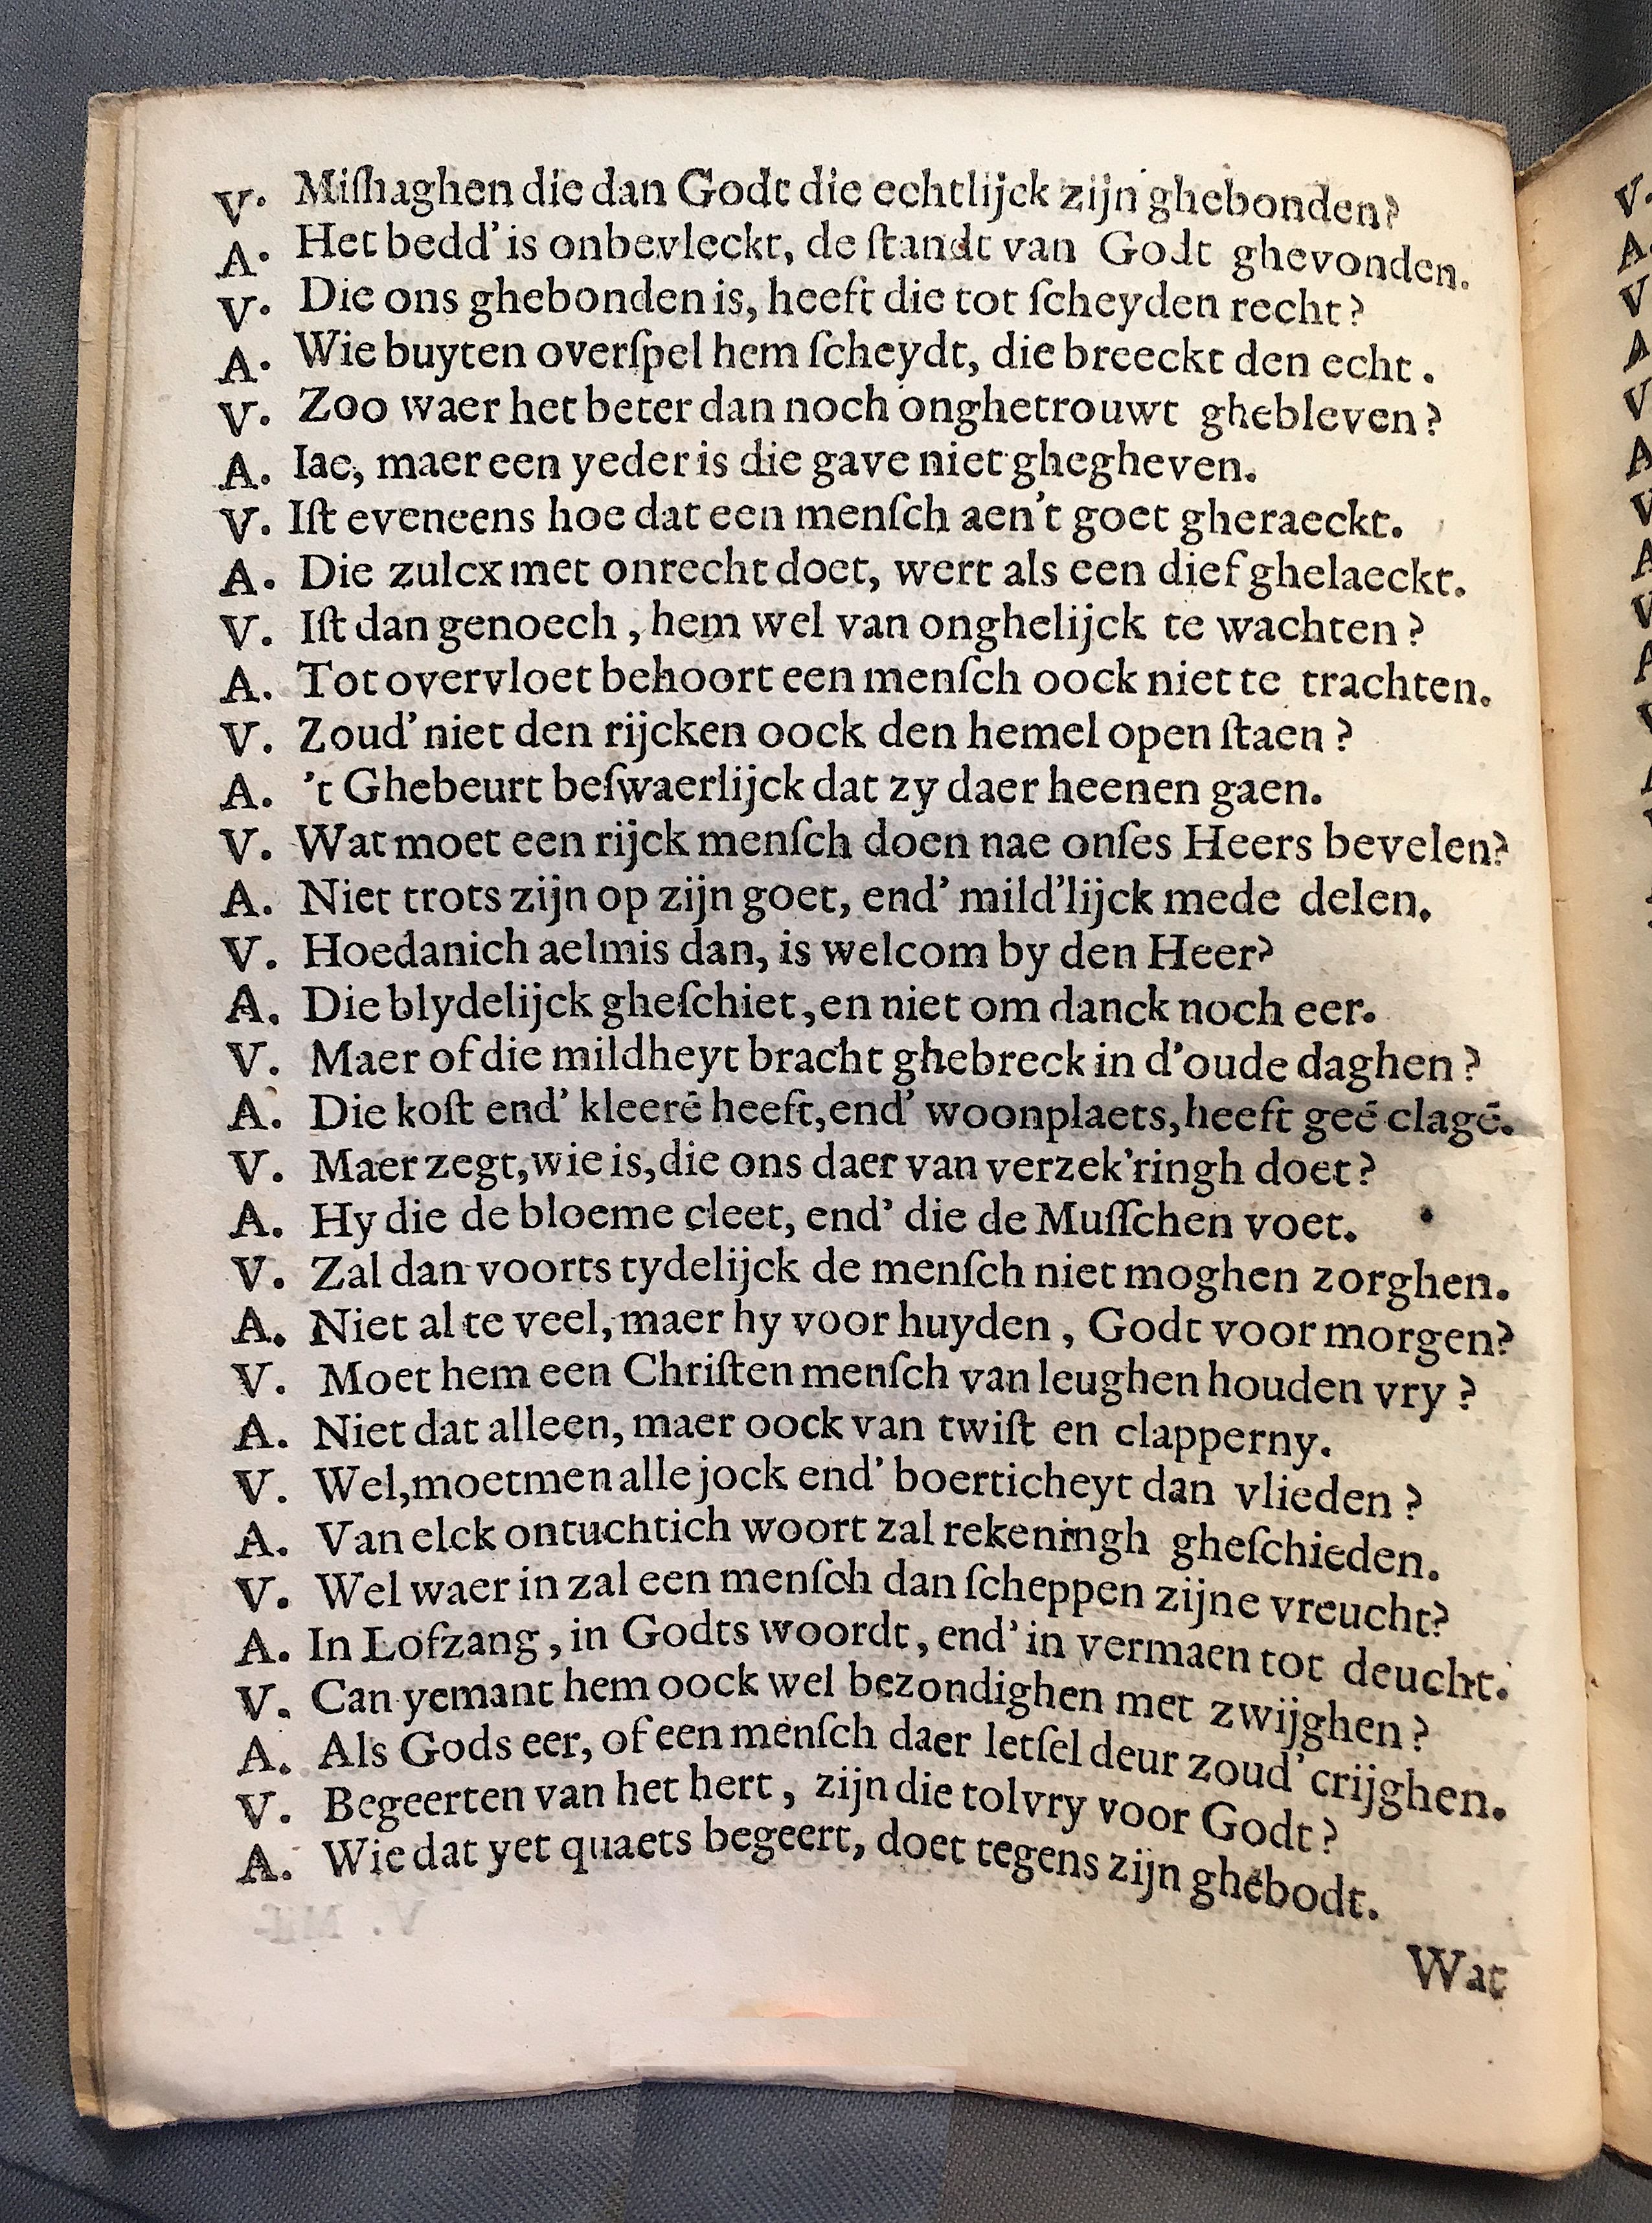 V. Miſhaghen die dan Godt die echtlijck zijn ghebonden?
A. Het bedd' is onbevleckt, de ſtandt van Godt ghevonden.
V. Die ons ghebonden is, heeft die tot ſcheyden recht?
A. Wie buyten overſpel hem ſcheydt, die breeckt den echt.
V. Zoo waer het beter dan noch onghetrouwt ghebleven?
A. Iae, maer een yeder is die gave niet ghegheven.
V. Iſt eveneens hoe dat een menſch aen't goet gheraeckt.
A. Die zulcx met onrecht doet, wert als een dief ghelaeckt.
V. Iſt dan genoech, hem wel van onghelijck te wachten?
A. Tot overvloet behoort een menſch oock niet te trachten.
V. Zoud' niet den rijcken oock den hemel open ſtaen?
A. 't Ghebeurt beſwaerlijck dat zy daer heenen gaen.
V. Wat moet een rijck menſch doen nae onſes Heers bevelen?
A. Niet trots zijn op zijn goet, end' mild'lijck mede delen.
V. Hoedanich aelmis dan, is welcom by den Heer?
A. Die blydelijck gheſchiet, en niet om danck noch eer.
V. Maer of die mildheyt bracht ghebreck in d'oude daghen?
A. Die koſt end' kleerē heeft, end' woonplaets, heeft geē clagē.
V. Maer zegt, wie is, die ons daer van verzek'ringh doet?
A. Hy die de bloeme cleet, end' die de Muſſchen voet.
V. Zal dan voorts tydelijck de menſch niet moghen zorghen.
A. Niet al te veel, maer hy voor huyden, Godt voor morgen?
V. Moet hem een Chriſten menſch van leughen houden vry?
A. Niet dat alleen, maer oock van twiſt en clapperny.
V. Wel, moetmen alle jock end' boerticheyt dan vlieden?
A. Van elck ontuchtich woort zal rekeningh gheſchieden.
V. Wel waer in zal een menſch dan ſcheppen zijne vreucht?
A. In Lofzang, in Godts woordt, end' in vermaen tot deucht.
V. Can yemant hem oock wel bezondighen met zwijghen?
A. Als Gods eer, of een menſch daer letſel deur zoud' crijghen.
V. Begeerten van het hert, zijn die tolvry voor Godt?
A. Wie dat yet quaets begeert, doet tegens zijn ghebodt.
Wat